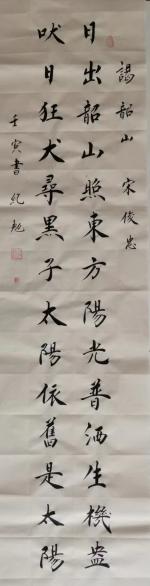 謁韶山 宋俊忠
日出韶山照東方陽光普洒生機盎
吠日狂犬尋黑子太陽依舊是太陽
壬寅書紀魁